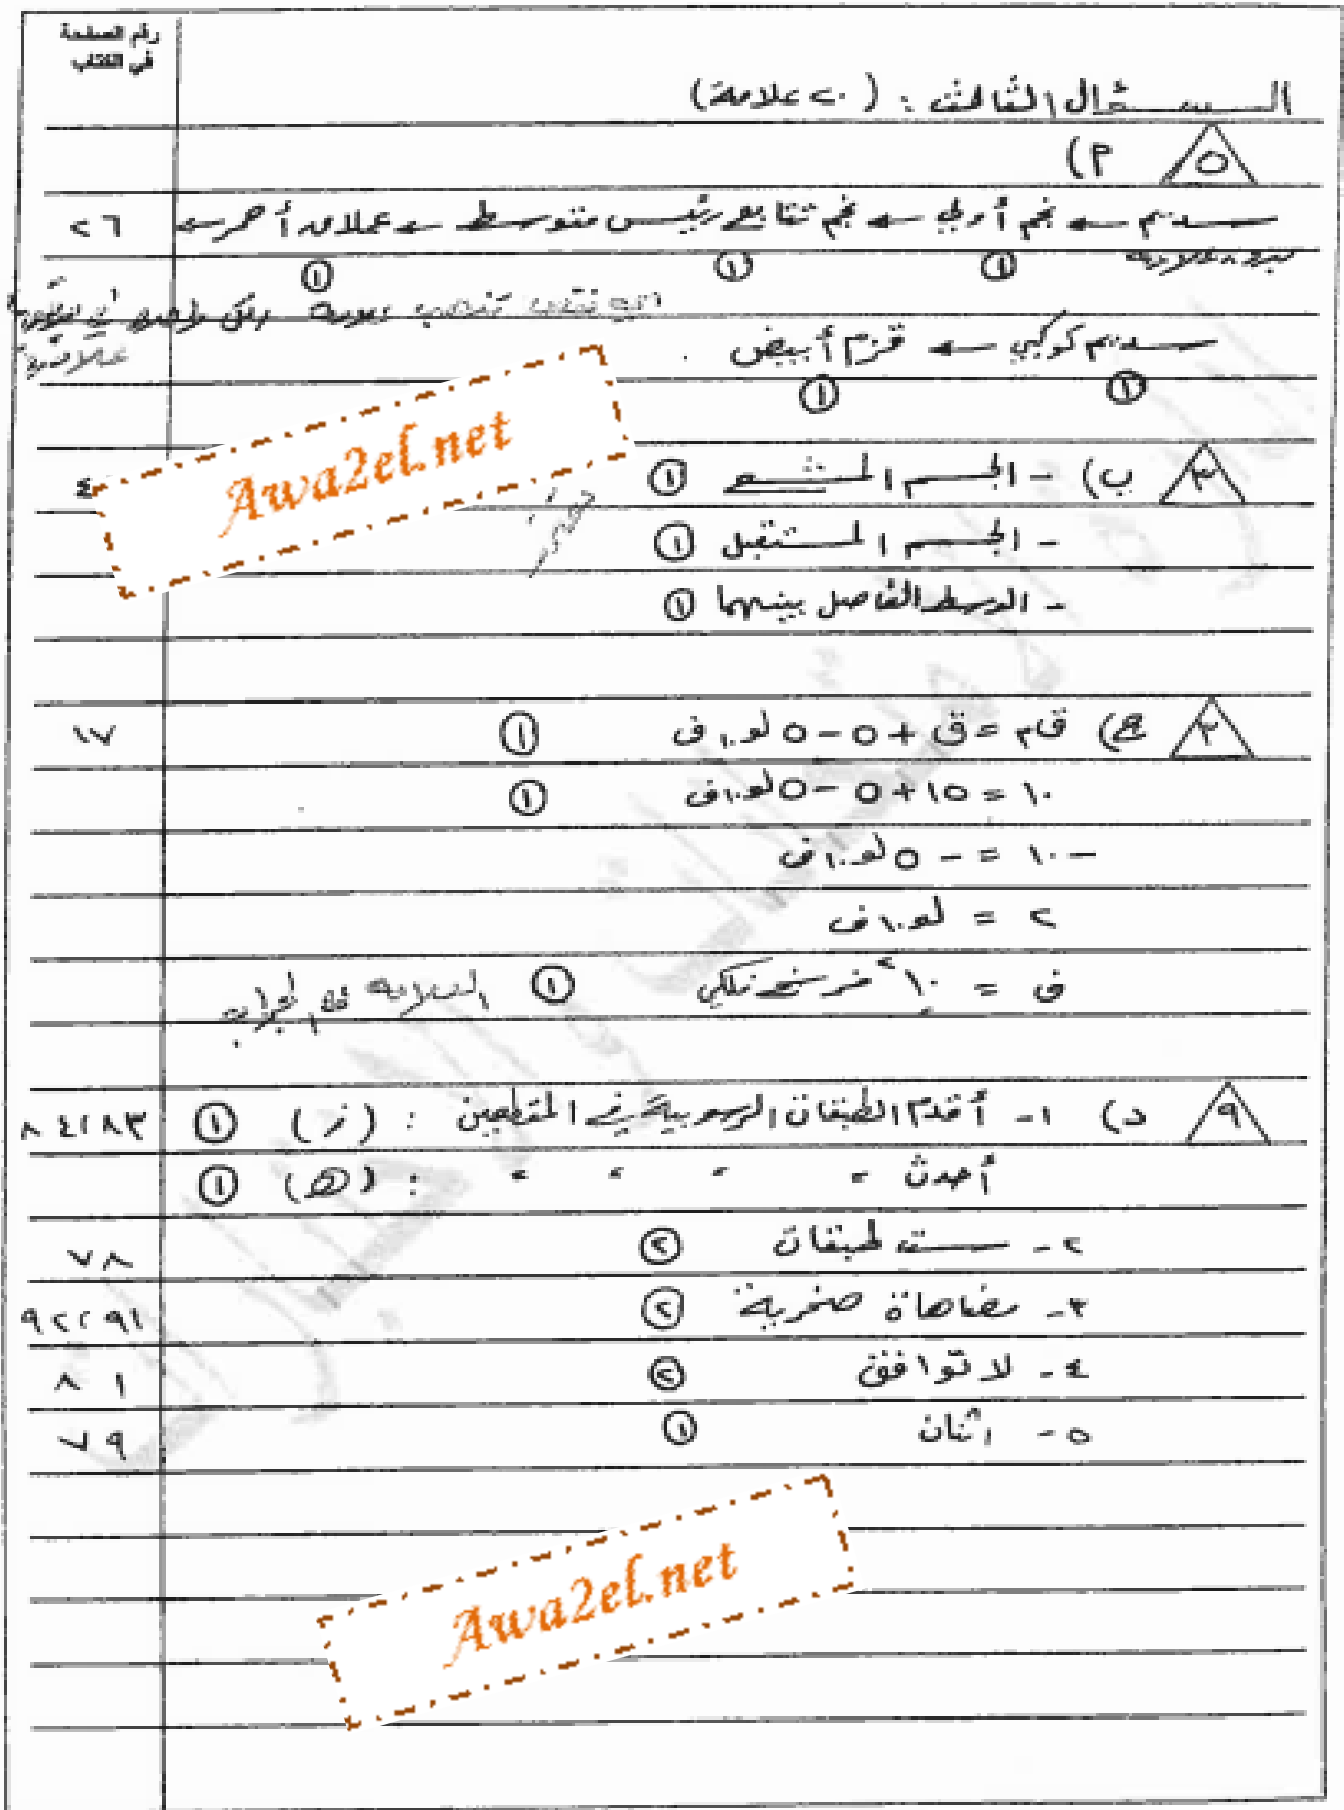 رقم الصفحة
في الكتاب
الســـؤال الثالث : (٢٠ علامة)
٥ (P
سديم ← نجم أولي ← نجم تتابع رئيس متوسط ← عملاق أحمر ← ٢٦
بدون علامة ① ① ①
سديم كوكبي ← قزم أبيض .
① ①
٣ ب) - الجسم المشع ① ٤
- الجسم المستقبل ①
- الوسط الفاصل بينهما ①
Awa2el.net
٣ ج) ق م = ق + ٥ - ٥ لو١٠ ف ① ١٧
١٠ = ١٥ + ٥ - ٥ لو١٠ ف ①
- ١٠ = - ٥ لو١٠ ف
٢ = لو١٠ ف
ف = ١٠^٢ فرسخ فلكي ① العلامة على الجواب
٩ د) ١- أقدم الطبقات الرسوبية في المقطعين : (ز) ① ٨٤،٨٣
أحدث = = = = : (هـ) ①
٢- ست طبقات ② ٧٨
٣- مضاهاة صخرية ② ٩٢،٩١
٤- لا توافق ② ٨١
٥- اثنان ① ٧٩
Awa2el.net